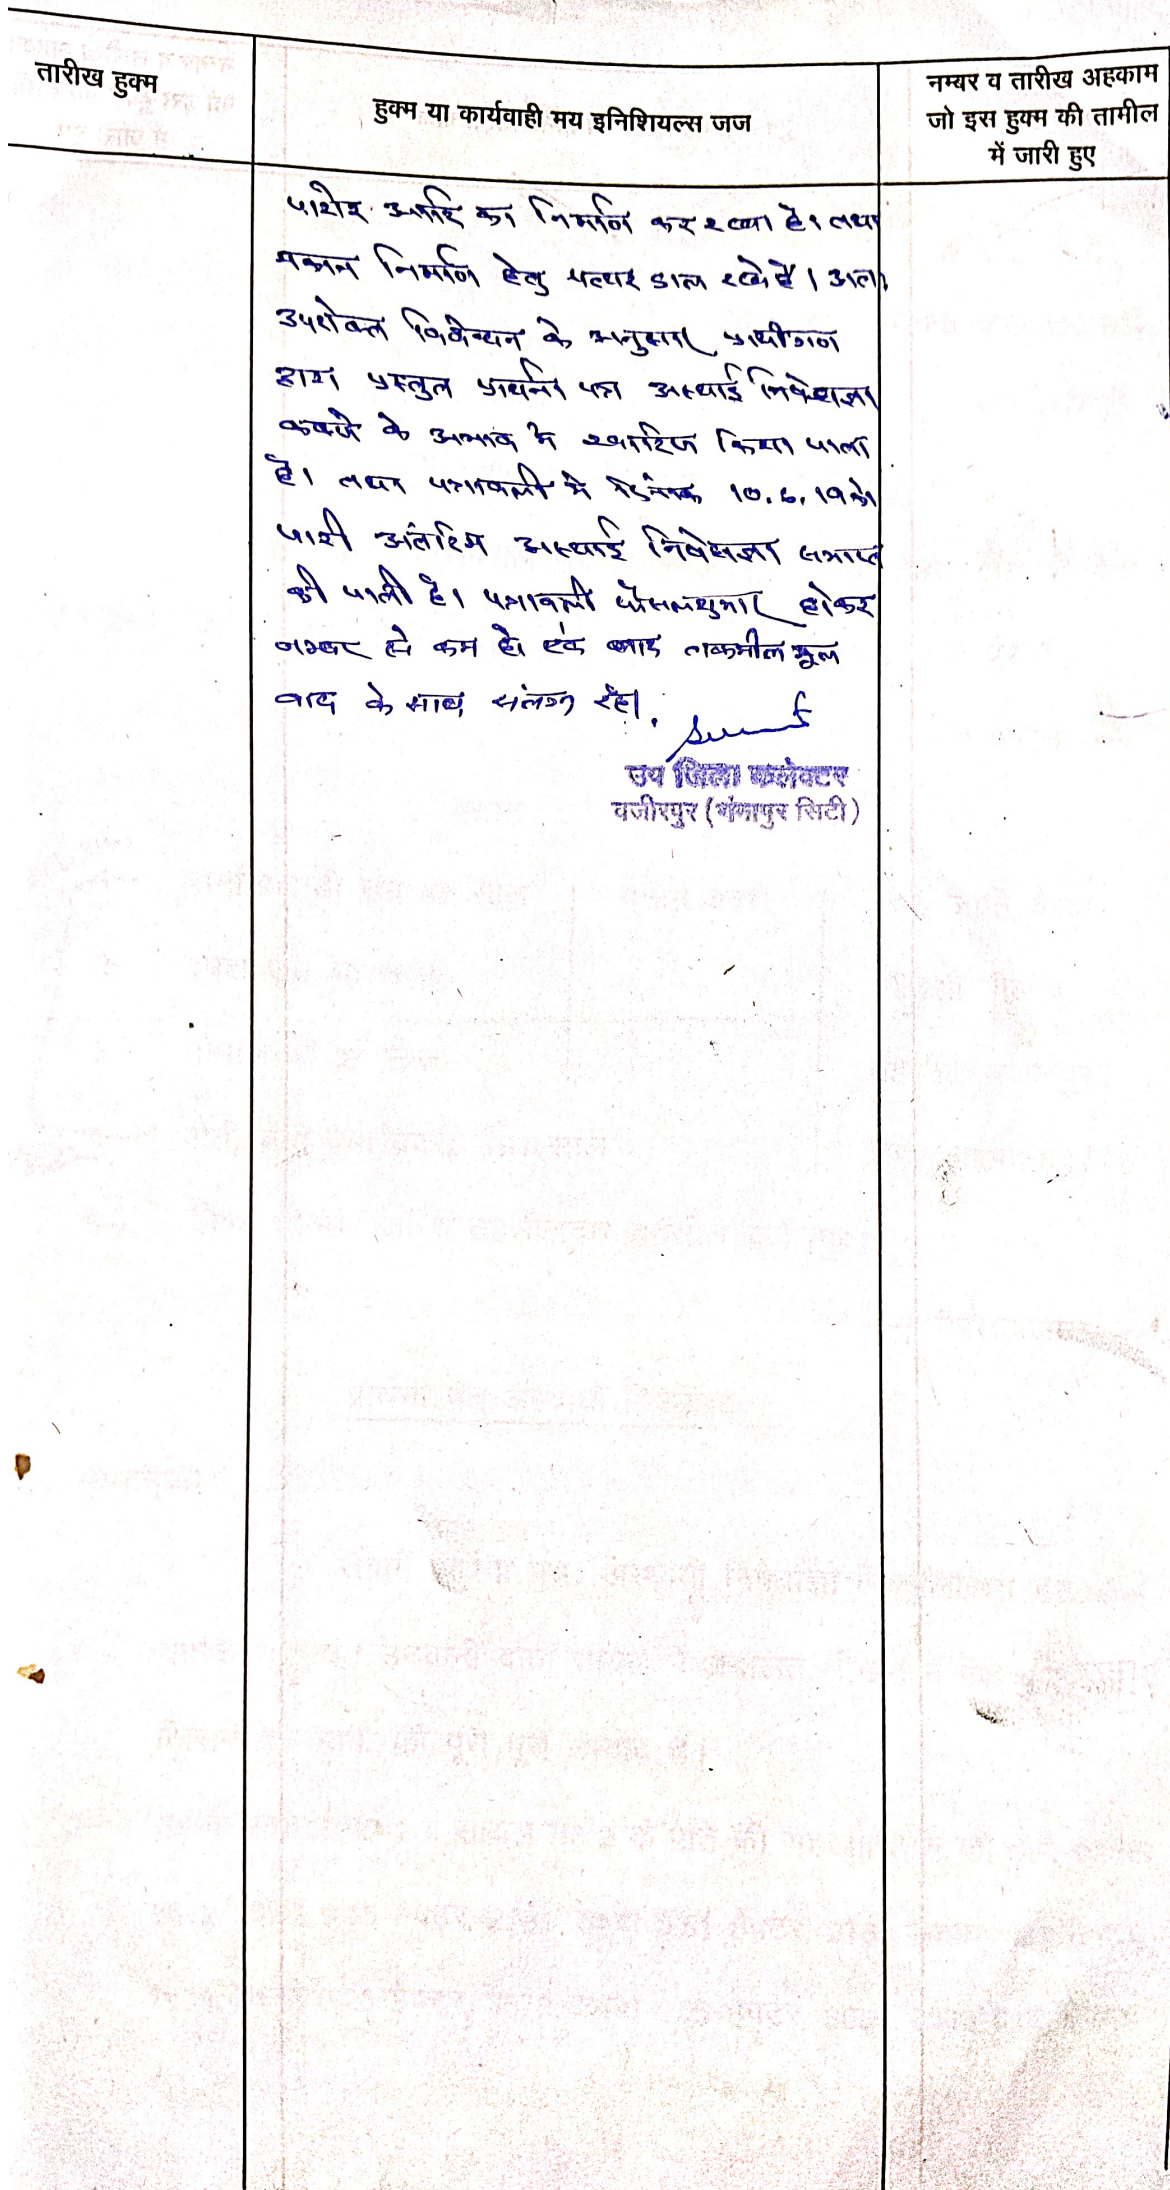 तारीख हुक्म
हुक्म या कार्यवाही मय इनिशियल्स जज
नम्बर व तारीख अहकाम
जो इस हुक्म की तामील
में जारी हुए
आदि का निर्माण कर रखा है। तथा
मकान निर्माण हेतु पत्थर डाल रखे हैं। अतः
उपरोक्त विवेचन के अनुसार प्रार्थीगण
द्वारा प्रस्तुत प्रार्थना पत्र अस्थाई निषेधाज्ञा
कब्जे के अभाव में खारिज किया जाता
है। तथा पत्रावली में दिनांक 10.6.19 को
जारी अंतरिम अस्थाई निषेधाज्ञा समाप्त
की जाती है। पत्रावली फैसलशुमार होकर
नम्बर से कम हो एवं बाद तकमील मूल
वाद के साथ संलग्न रहे।
उप जिला कलेक्टर
वजीरपुर (गंगापुर सिटी)